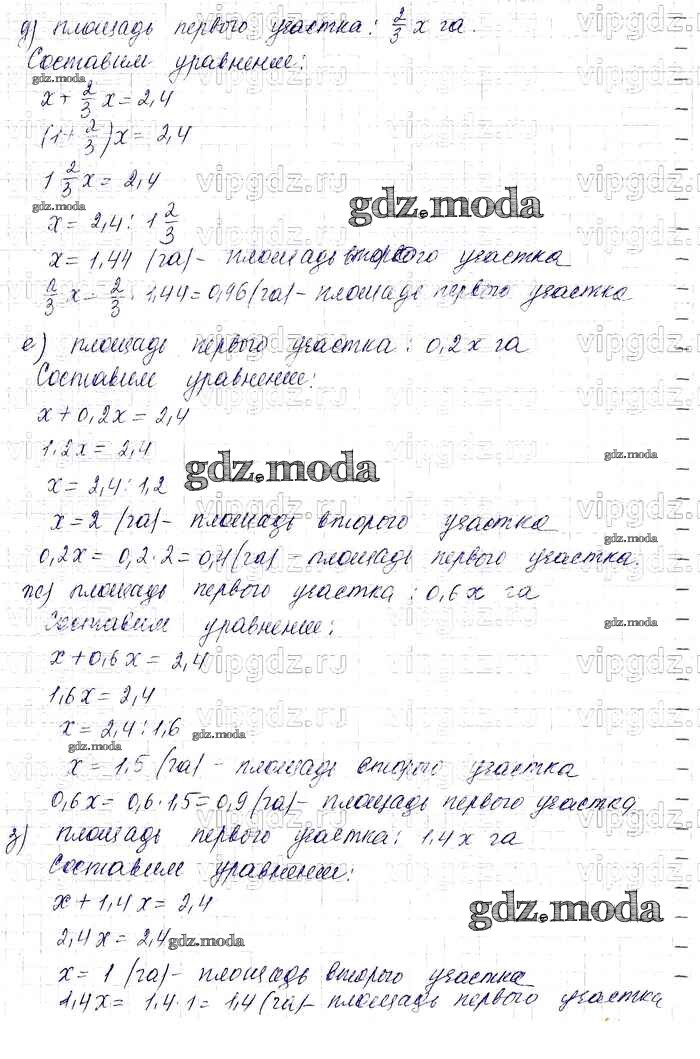 д) площадь первого участка: 2/3 x га.
Составим уравнение:
gdz.moda
x + 2/3 x = 2,4
(1 + 2/3)x = 2,4
1 2/3 x = 2,4
gdz.moda
gdz.moda
x = 2,4 : 1 2/3
x = 1,44 (га) - площадь второго участка
2/3 x = 2/3 · 1,44 = 0,96 (га) - площадь первого участка
е) площадь первого участка: 0,2x га
Составим уравнение:
x + 0,2x = 2,4
1,2x = 2,4
gdz.moda
gdz.moda
x = 2,4 : 1,2
x = 2 (га) - площадь второго участка
0,2x = 0,2 · 2 = 0,4 (га) - площадь первого участка.
ж) площадь первого участка: 0,6x га
Составим уравнение:
gdz.moda
x + 0,6x = 2,4
1,6x = 2,4
x = 2,4 : 1,6
gdz.moda
gdz.moda
x = 1,5 (га) - площадь второго участка
0,6x = 0,6 · 1,5 = 0,9 (га) - площадь первого участка
з) площадь первого участка: 1,4x га
Составим уравнение:
x + 1,4x = 2,4
gdz.moda
2,4x = 2,4
gdz.moda
x = 1 (га) - площадь второго участка
1,4x = 1,4 · 1 = 1,4 (га) - площадь первого участка
vipgdz.ru